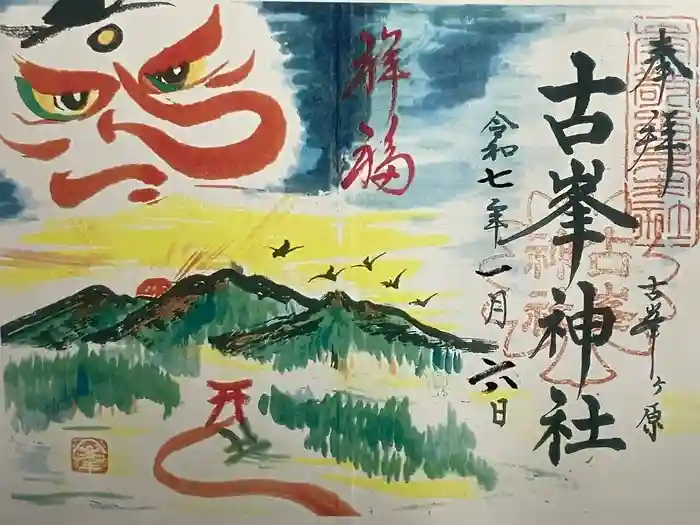 奉拝
古峯神社
古峯ヶ原
令和七年一月六日
祥福